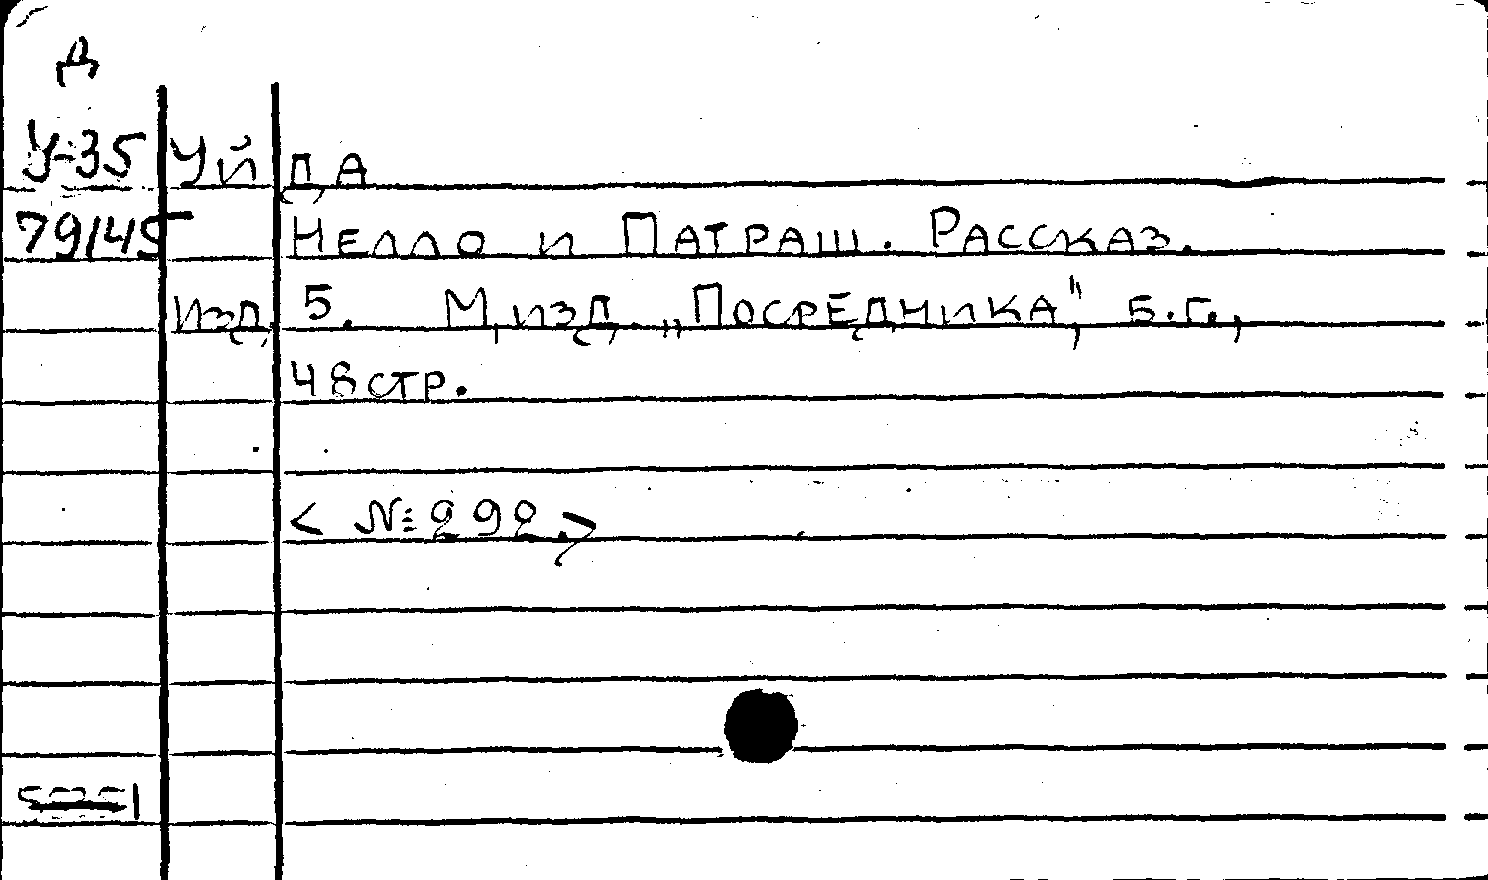 Д
У-35 Уйда
79145 Нелло и Патраш. Рассказ.
Изд. 5. М, изд. „Посредника", б.г.,
48 стр.
< № 292.>